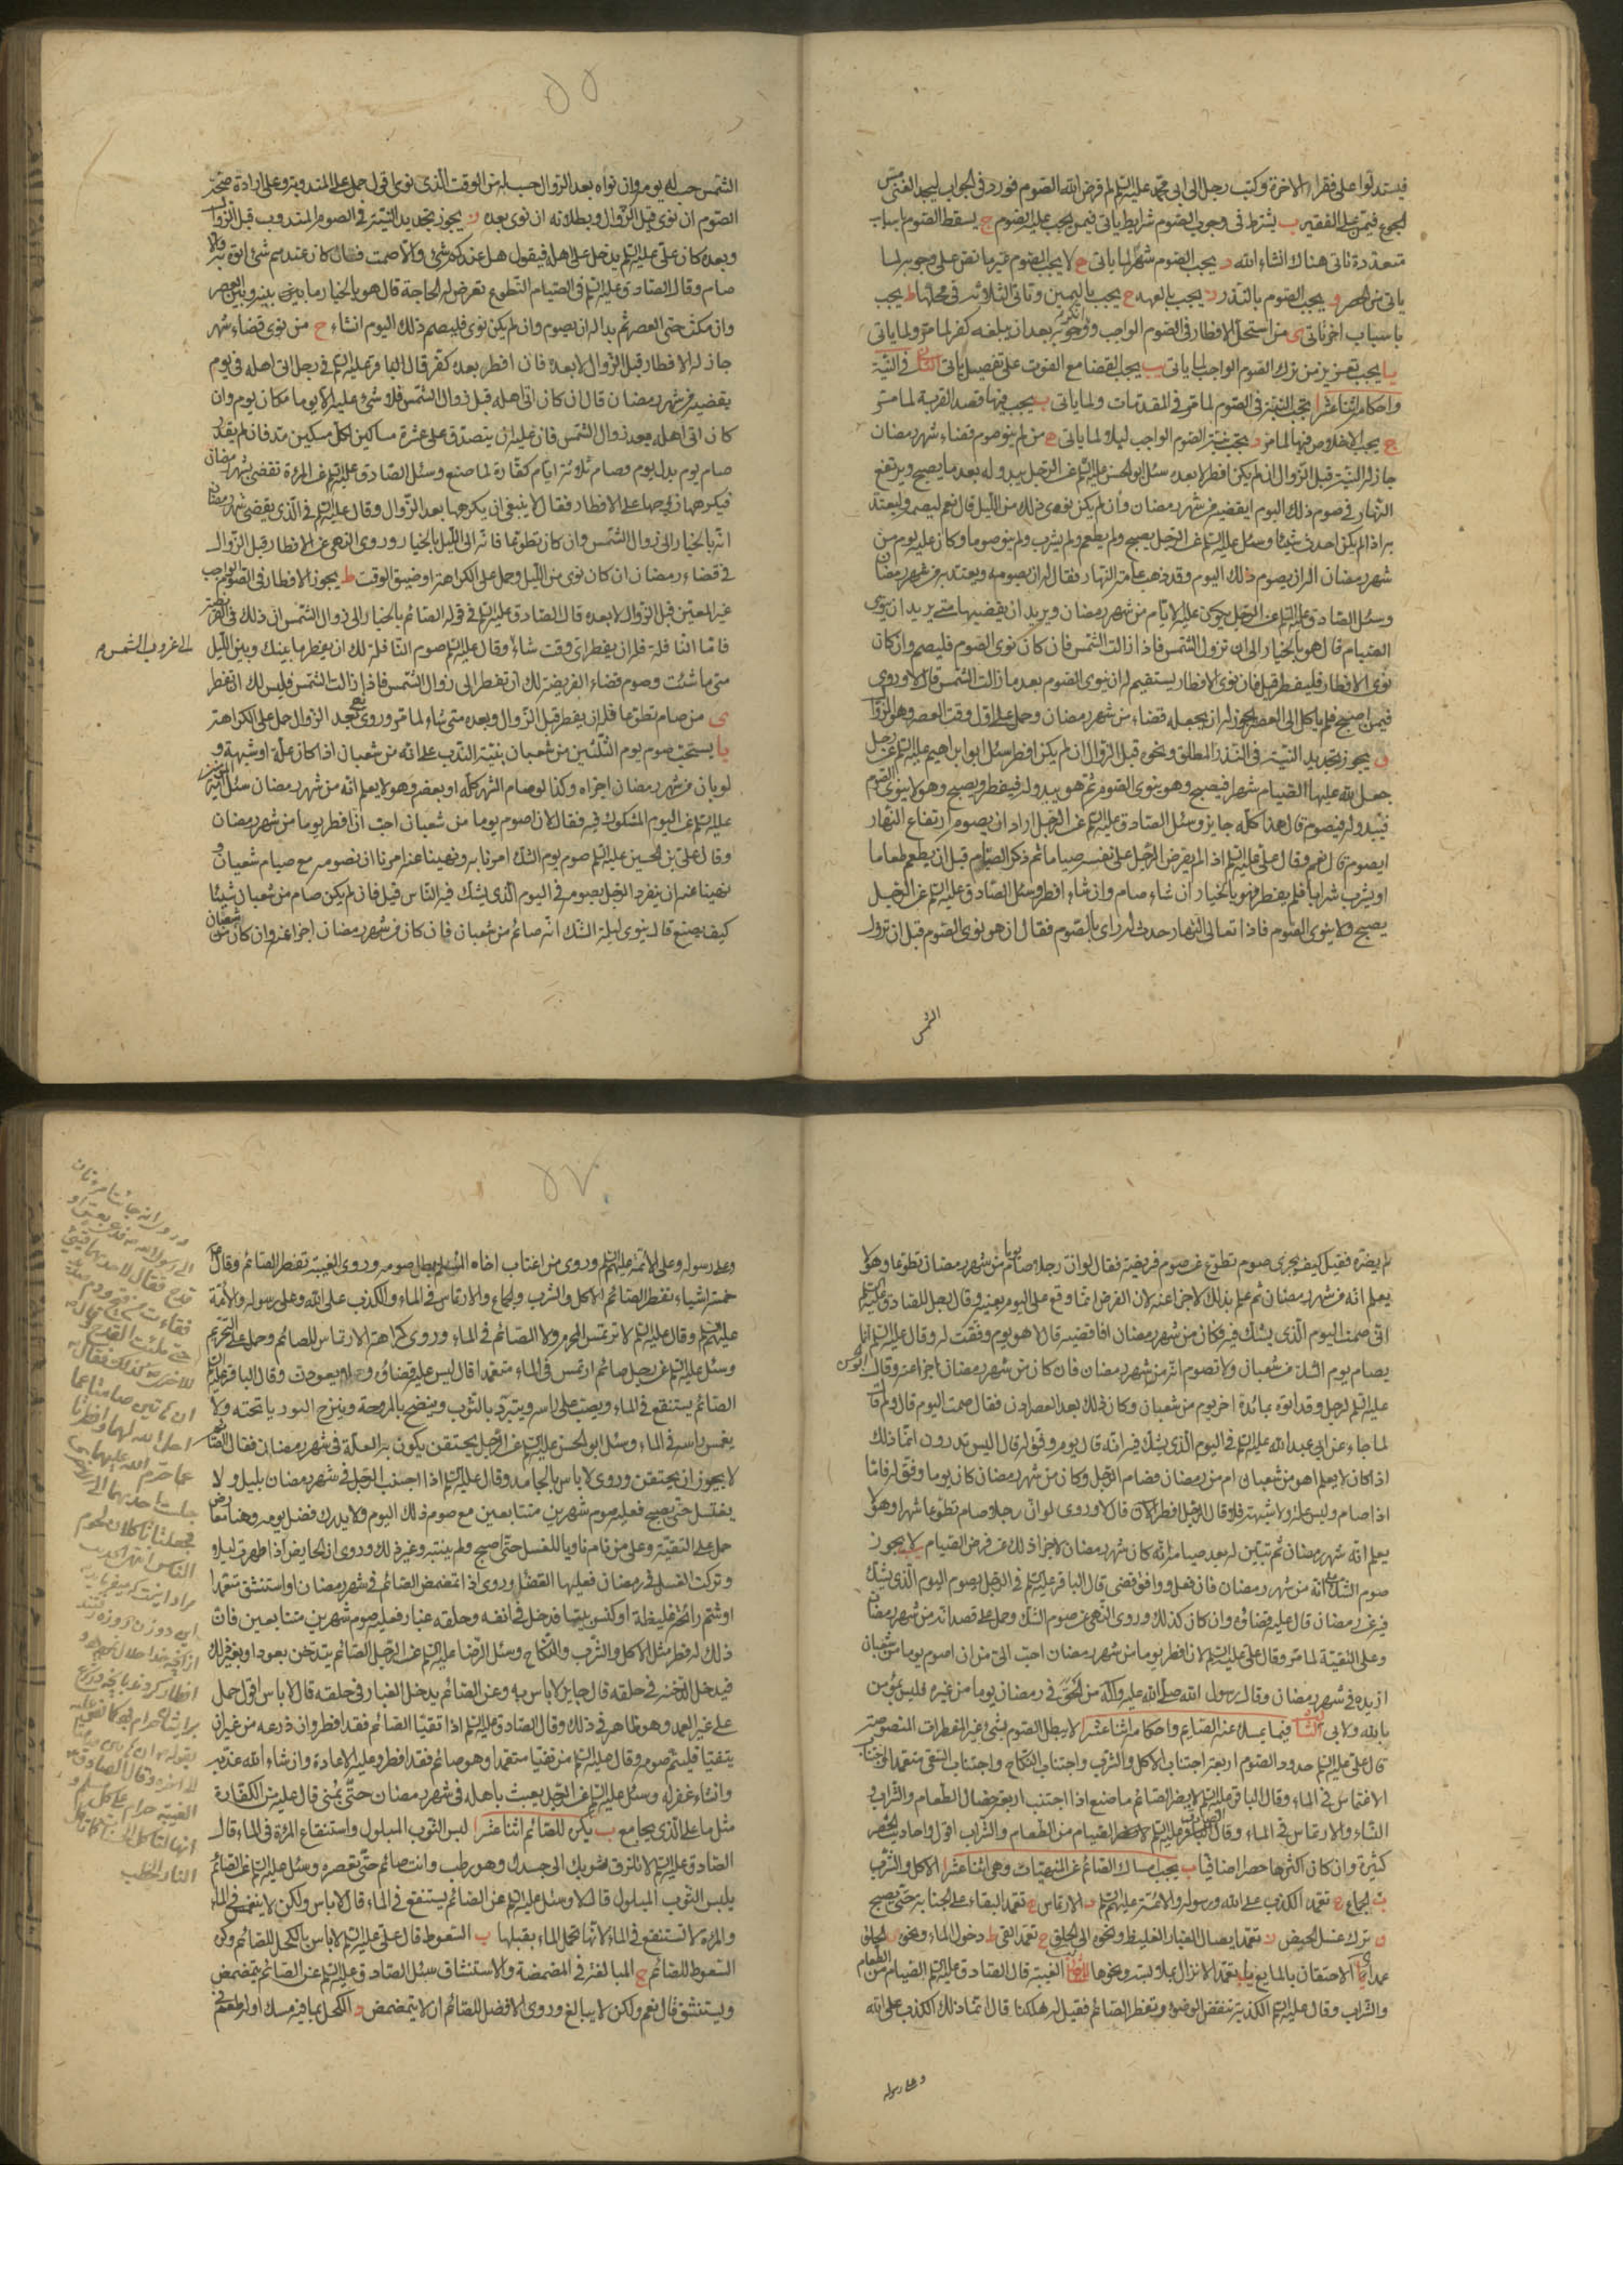 فيستدلوا على فقراء الآخرة وكتب رجل الى ابى محمد عليه السلم لم فرض الله الصوم فورد فى الجواب ليجد الغنى مس
الجوع فيمن على الفقير ب يشترط فى وجوب الصوم شرايط ياتى فيمن يجب عليه الصوم ج يسقط الصوم باسباب
متعددة تاتى هناك انشاء الله د يجب الصوم شهرا لما ياتى ه لا يجب الصوم غير ما نص على وجوبه لما
ياتى من الحصر و يجب الصوم بالنذر ز يجب بالعهد ح يجب باليمين وتاتى الثلاثة فى محلها ط يجب
باسباب اخر تاتى ى من استحل الافطار فى الصوم الواجب بعد ان بلغه كفر لما مر ولما ياتى
يا يجب تعزير من ترك الصوم الواجب لما ياتى يب يجب القضا مع الفوت على تفصيل ياتى فى النية
واحكامها اثنا عشر ا تجب النية فى الصوم لما مر فى المقدمات ولما ياتى ب يجب فيها قصد القربة لما مر
ج يجب الاخلاص فيها لما مر د تجب نية الصوم الواجب ليلا ولما ياتى ه من لم ينو صوم قضاء شهر رمضان
جاز له النية قبل الزوال ان لم يكن افطر لا بعده سئل ابو الحسن عليه السلم عن الرجل يبدو له بعد ما يصبح ويرتفع
النهار فى صوم ذلك اليوم ليقضيه من شهر رمضان وان لم يكن نوى ذلك من الليل قال نعم ليصمه وليعتد
به اذا لم يكن احدث شيئا وسئل عليه السلم عن الرجل يصبح ولم يطعم ولم يشرب ولم ينو صوما وكان عليه يوم من
شهر رمضان اله ان يصوم ذلك اليوم وقد ذهب عامة النهار فقال له ان يصومه ويعتد به من شهر رمضان
وسئل الصادق عليه السلم عن الرجل يكون عليه الايام من شهر رمضان ويريد ان يقضيها متى يريد ان ينوى
الصيام قال هو بالخيار الى ان تزول الشمس فاذا زالت الشمس فان كان نوى الصوم فليصم وان كان
نوى الافطار فليفطر قيل فان نوى الافطار يستقيم له ان ينوى الصوم بعد ما زالت الشمس قال لا وروى
فيمن اصبح فلم ياكل الى العصر يجوز له ان يجعله قضاء من شهر رمضان وحمل على اول وقت العصر وهو الزوال
و يجوز تجديد النية فى النذر المطلق ونحوه قبل الزوال ان لم يكن افطر سئل ابو ابراهيم عليه السلم عن رجل
جعل لله عليه الصيام شهرا فيصبح وهو ينوى الصوم ثم هو يبدو له فيفطر ويصبح وهو لا ينوى الصوم
فيبدو له فيصوم قال هذا كله جايز وسئل الصادق عليه السلم عن الرجل اراد ان يصوم ارتفاع النهار
ايصوم قال نعم وقال على عليه السلم اذا لم يفرض الرجل على نفسه صياما ثم ذكر الصيام قبل ان يطعم طعاما
او يشرب شرابا فلم يفطر فهو بالخيار ان شاء صام وان شاء افطر وسئل الصادق عليه السلم عن الرجل
يصبح ولا ينوى الصوم فاذا تعالى النهار حدث له راى بالصوم فقال ان هو نوى الصوم قبل ان تزول
الشمس
٥٥
الشمس حسب له يومه وان نواه بعد الزوال حسب له من الوقت الذى نوى اقول حمل على المندوب وعلى ارادة صحة
الصوم ان نوى قبل الزوال وبطلانه ان نوى بعده ز يجوز تجديد النية فى الصوم المندوب قبل الزوال
وبعده كان على عليه السلم يدخل على اهله فيقول هل عندكم شئ والا صمت فان كان عندهم شئ اتوه به والا
صام وقال الصادق عليه السلم فى الصيام التطوع تعرض له الحاجة قال هو بالخيار ما بينه وبين العصر
وان مكث حتى العصر ثم بدا له ان يصوم وان لم يكن نوى فليصم ذلك اليوم انشاء ح من نوى قضاء شهر
جاز له الافطار قبل الزوال لا بعده فان افطر بعده كفر قال الباقر عليه السلم فى رجل اتى اهله فى يوم
يقضيه من شهر رمضان قال ان كان اتى اهله قبل زوال الشمس فلا شئ عليه الا يوما مكان يوم وان
كان اتى اهله بعد زوال الشمس فان عليه ان يتصدق على عشرة مساكين لكل مسكين مد فان لم يقدر
صام يوم بدل يوم وصام ثلاثة ايام كفارة لما صنع وسئل الصادق عليه السلم عن المرءة تقضى شهر رمضان
فيكرهها زوجها على الافطار فقال لا ينبغى ان يكرهها بعد الزوال وقال عليه السلم فى الذى يقضى شهر رمضان
انه بالخيار الى زوال الشمس وان كان تطوعا فانه الى الليل بالخيار وروى النهى عن الافطار قبل الزوال
فى قضاء رمضان ان كان نوى من الليل وحمل على الكراهة او ضيق الوقت ط يجوز الافطار فى الصوم الواجب
غير المعين قبل الزوال لا بعده قال الصادق عليه السلم فى قوله الصائم بالخيار الى زوال الشمس ان ذلك فى الفريضة
فاما النافلة فله ان يفطر اى وقت شاء وقال عليه السلم صوم النافلة لك ان تفطر ما بينك وبين الليل
الى غروب الشمس
متى ما شئت وصوم قضاء الفريضة لك ان تفطر الى زوال الشمس فاذا زالت الشمس فليس لك ان تفطر
ى من صام تطوعا فله ان يفطر قبل الزوال وبعده متى شاء لما مر وروى بعد الزوال حمل على الكراهة
يا يستحب صوم يوم الثلثين من شعبان بنية الندب على انه من شعبان اذا كان علة او شبهة و
لو بان من شهر رمضان اجزاه وكذا لو صام الشهر كله او بعضه وهو لا يعلم انه من شهر رمضان سئل
عليه السلم عن اليوم المشكوك فيه فقال لان اصوم يوما من شعبان احب ان افطر يوما من شهر رمضان
وقال على بن الحسين عليه السلم صوم يوم الشك امرنا به ونهينا عنه امرنا ان نصومه مع صيام شعبان و
نهينا عنه ان ينفرد الرجل بصيومه فى اليوم الذى يشك فيه الناس قيل فان لم يكن صام من شعبان شيئا
كيف يصنع قال ينوى ليلة الشك انه صائم من شعبان فان كان من شهر رمضان اجزا عنه وان كان من شعبان
لم يضره فقيل كيف يجزى صوم تطوع عن صوم فريضة فقال لو ان رجلا صام يوما من شهر رمضان تطوعا وهو لا
يعلم انه من شهر رمضان ثم علم بذلك لاجزا عنه لان الفرض انما وقع على اليوم بعينه وقال رجل للصادق عليه السلم
انى صمت اليوم الذى يشك فيه فكان من شهر رمضان افاقضيه قال لا هو يوم وفقت له وقال عليه السلم انما
يصام يوم الشك من شعبان ولا تصومه انه من شهر رمضان فان كان من شهر رمضان اجزا عنه وقال
عليه السلم لرجل وقد اتوه بمائدة اخر يوم من شعبان وكان ذلك بعد العصر ادن فقال صمت اليوم قال ولم قال
لما جاء عن ابى عبد الله عليه السلم فى اليوم الذى يشك فيه انه قال يوم وفق له قال اليس تدرون انما ذلك
اذا كان لا يعلم اهو من شعبان ام من رمضان فصام الرجل وكان من شهر رمضان كان يوما وفق له فاما
اذا صام وليس علة ولا شبهة فلا وقال الرجل افطر الان قال لا وروى لو ان رجلا صام تطوعا شهرا وهو لا
يعلم انه شهر رمضان ثم تبين له بعد صيامه انه كان شهر رمضان لاجزا ذلك عن فرض الصيام يب لا يجوز
صوم الشك على انه من شهر رمضان فان فعل ووافق قضى قال الباقر عليه السلم فى الرجل يصوم اليوم الذى يشك
فيه من رمضان قال عليه قضاؤه وان كان كذلك وروى النهى عن صوم الشك وحمل على قصد انه من شهر رمضان
وعلى التقية لما مر وقال على عليه السلم لان افطر يوما من شهر رمضان احب الى من ان اصوم يوما من شعبان
ازيده فى شهر رمضان وقال رسول الله صلى الله عليه وآله من الحق فى رمضان يوما من غيره فليس بمؤمن
بالله ولا بى فيما يمسك عنه الصايم واحكامه اثنا عشر ا لا يبطل الصوم بشئ غير المفطرات المنصوصة
قال على عليه السلم حدود الصوم اربعة اجتناب الاكل والشرب واجتناب النكاح واجتناب القئ متعمدا واجتناب
الاغتماس فى الماء وقال الباقر عليه السلم لا يضر الصائم ما صنع اذا اجتنب اربع خصال الطعام والشراب و
النساء والارتماس فى الماء وقال عليه السلم الصيام من الطعام والشراب اقول واحاديث الحصر
كثيرة وان كان اكثرها حصرا اضافيا ب يجب امساك الصائم عن المنهيات وهى اثنا عشر ا الاكل والشرب
ب الجماع ج تعمد الكذب على الله ورسوله والائمة عليهم السلم د الارتماس ه تعمد البقاء على الجنابة حتى يصبح
و ترك غسل الحيض ز تعمد ايصال الغبار الغليظ ونحوه الى الحلق ح تعمد القى ط دخول الماء ونحوه الحلق
عمدا يا الاحتقان بالمايع يب تعمد الانزال بملاعبة ونحوها الغيبة قال الصادق عليه السلم الصيام من الطعام
والشراب وقال عليه السلم الكذبة تنقض الوضوء وتفطر الصائم فقيل له هلكنا قال انما ذلك الكذب على الله
وعلى رسوله
٥٧
وعلى رسوله وعلى الائمة عليهم السلم وروى من اغتاب اخاه المسلم بطل صومه وروى الغيبة تفطر الصائم وقال
خمسة اشياء تفطر الصائم الاكل والشرب والجماع والارتماس فى الماء والكذب على الله وعلى رسوله والائمة
عليهم السلم وقال عليه السلم لا يرتمس المحرم ولا الصائم فى الماء وروى كراهة الارتماس للصائم وحمل على التحريم
وسئل عليه السلم عن رجل صائم ارتمس فى الماء متعمدا قال ليس عليه قضاؤه ولا يعودن وقال الباقر عليه السلم
الصائم يستنقع فى الماء ويصب على راسه ويتبرد بالثوب وينضح بالمروحة وينضح البوريا تحته ولا
يغمس راسه فى الماء وسئل ابو الحسن عليه السلم عن الرجل يحتقن يكون به العلة فى شهر رمضان فقال الصائم
لا يجوز ان يحتقن وروى لا باس بالجامد وقال عليه السلم اذا اجنب الرجل فى شهر رمضان بليل ولا
يغتسل حتى يصبح فعليه صوم شهرين متتابعين مع صوم ذلك اليوم ولا يدرك فضل يومه وهنا معارض
حمل على التقية وعلى من نام ناويا للغسل حتى اصبح ولم ينتبه وغير ذلك وروى ان الحايض اذا طهرت ليلا
وتركت الغسل فى رمضان فعليها القضاء وروى اذا تمضمض الصائم فى شهر رمضان او استنشق متعمدا
او شم رائحة غليظة او كنس بيتا فدخل فى انفه وحلقه غبار فعليه صوم شهرين متتابعين فان
ذلك له فطر مثل الاكل والشرب والنكاح وسئل الرضا عليه السلم عن الرجل الصائم يتدخن بعود او بغير ذلك
فيدخل الدخنة فى حلقه قال جايز لا باس به وعن الصائم يدخل الغبار فى حلقه قال لا باس اقول حمل
على غير العمد وهو ظاهر فى ذلك وقال الصادق عليه السلم اذا تقيأ الصائم فقد افطر وان ذرعه من غير ان
يتقيأ فليتم صومه وقال عليه السلم من تقيأ متعمدا وهو صائم فقد افطر وعليه الاعادة وان شاء الله عذبه
وان شاء غفر له وسئل عليه السلم عن الرجل يعبث باهله فى شهر رمضان حتى يمنى قال عليه من الكفارة
مثل ما على الذى يجامع ب يكره للصائم اثنا عشر ا لبس الثوب المبلول واستنقاع المرءة فى الماء قال
الصادق عليه السلم لا تلزق ثوبك الى جسدك وهو رطب وانت صائم حتى تعصره وسئل عليه السلم عن الصائم
يلبس الثوب المبلول قال لا وسئل عليه السلم عن الصائم يستنقع فى الماء قال لا باس ولكن لا ينغمس فى الماء
والمرءة لا تستنقع فى الماء لانها تحمل الماء بقبلها ب السعوط قال على عليه السلم لا باس بالكحل للصائم وكره
السعوط للصائم ج المبالغة فى المضمضة والاستنشاق سئل الصادق عليه السلم عن الصائم يتمضمض
ويستنشق قال نعم ولكن لا يبالغ وروى الافضل للصائم ان لا يتمضمض د الكحل بما فيه مسك او له طعم فى